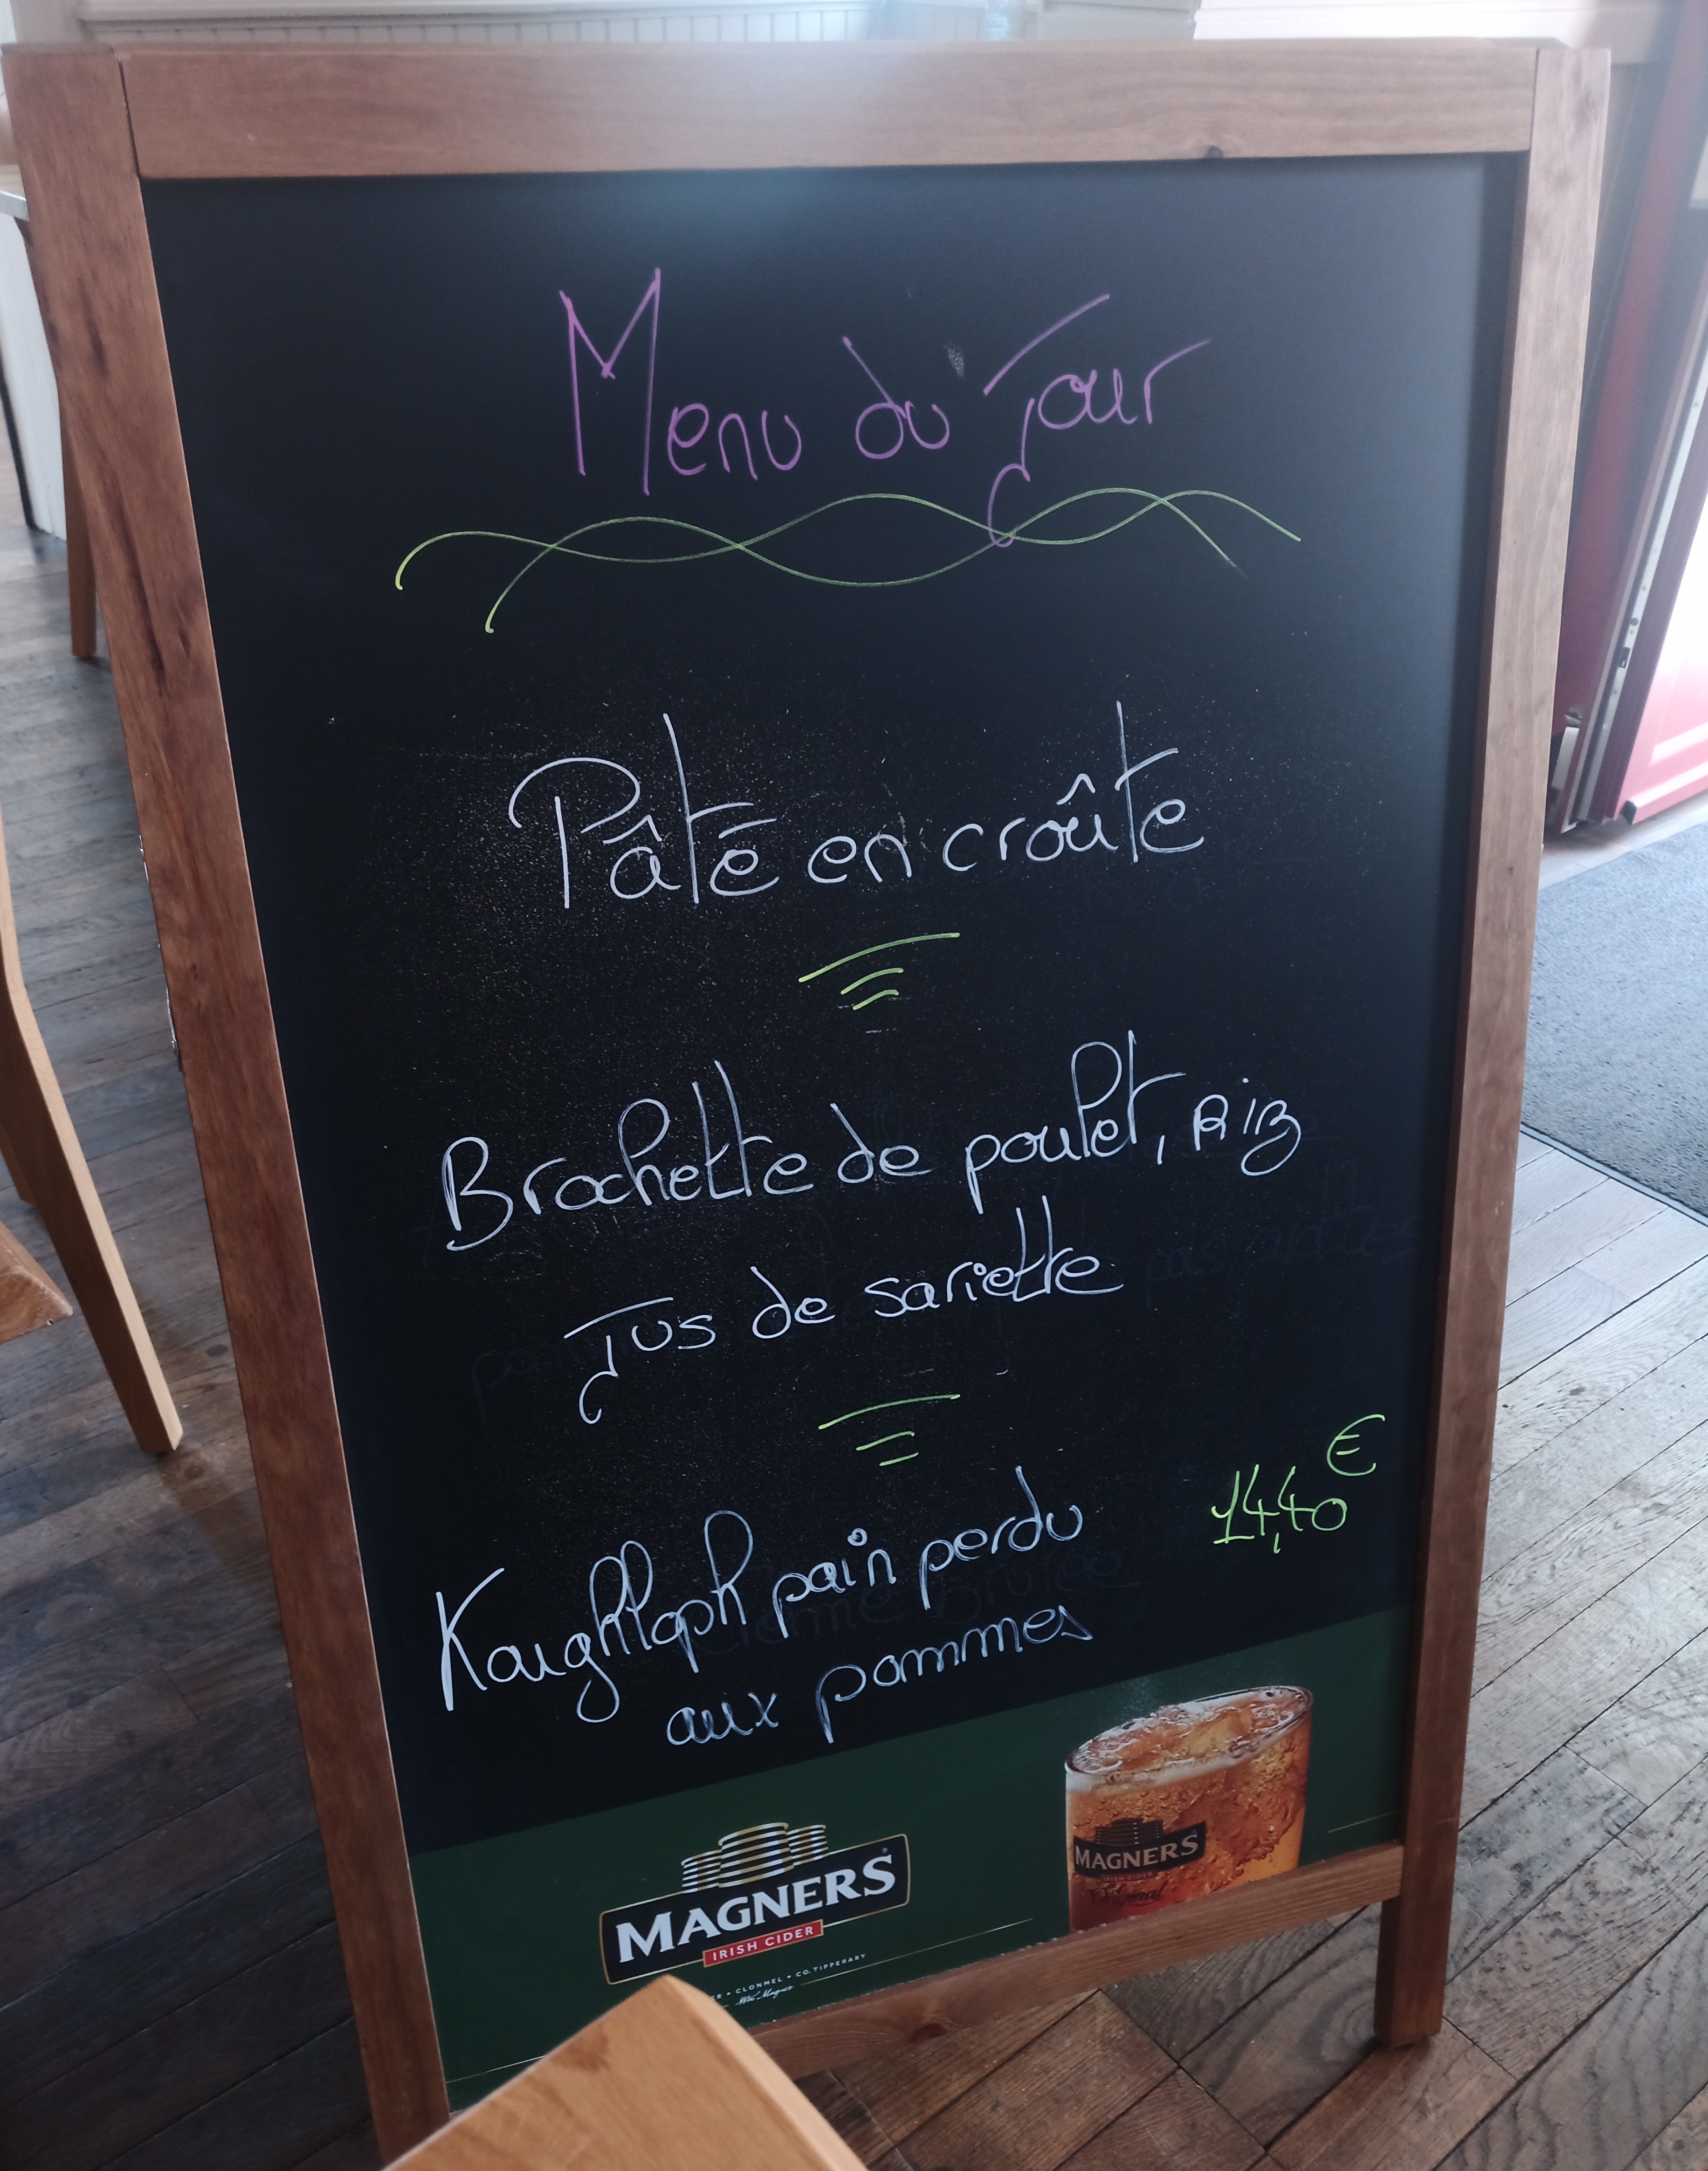 Menu du Jour
Pâté en croûte
Brochette de poulet, Riz
Jus de sariette
Kaughloph pain perdu
aux pommes
14,40 €
MAGNERS
IRISH CIDER
CLONMEL • CO. TIPPERARY
Wm Magner
MAGNERS
IRISH CIDER
Original